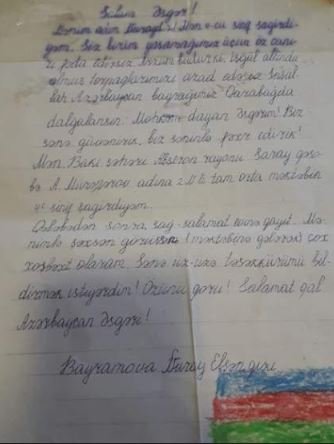 Salam Əsgər!
Mənim adım Nuraydır! Mən 4-cü sinif şagirdi-
yəm. Siz bizim yaşamağımız üçün öz canı-
nı fəda edirsiz. Arzum budurki, işğal altında
olmuş torpaqlarımızı azad edəsiz. İnşal-
lah Azərbaycan bayrağımız Qarabağda
dalğalansın. Möhkəm dayan Əsgərim! Biz
sənə güvənirik, biz səninlə fəxr edirik!
Mən Bakı şəhəri Abşeron rayonu Saray qəsə-
bə A. adına 2 №li tam orta məktəbin
4 sinif şagirdiyəm.
Qələbədən sonra, sağ-salamat evinə qayıt. Mə-
nimlə şəxsən görüşsən (məktəbimə gələrək) çox
xoşbəxt olaram. Sənə üz-üzə təşəkkürümü bil-
dirmək istəyərdim! Özünü qoru! Salamat qal
Azərbaycan Əsgəri!
Bayramova Nuray Elşən qızı